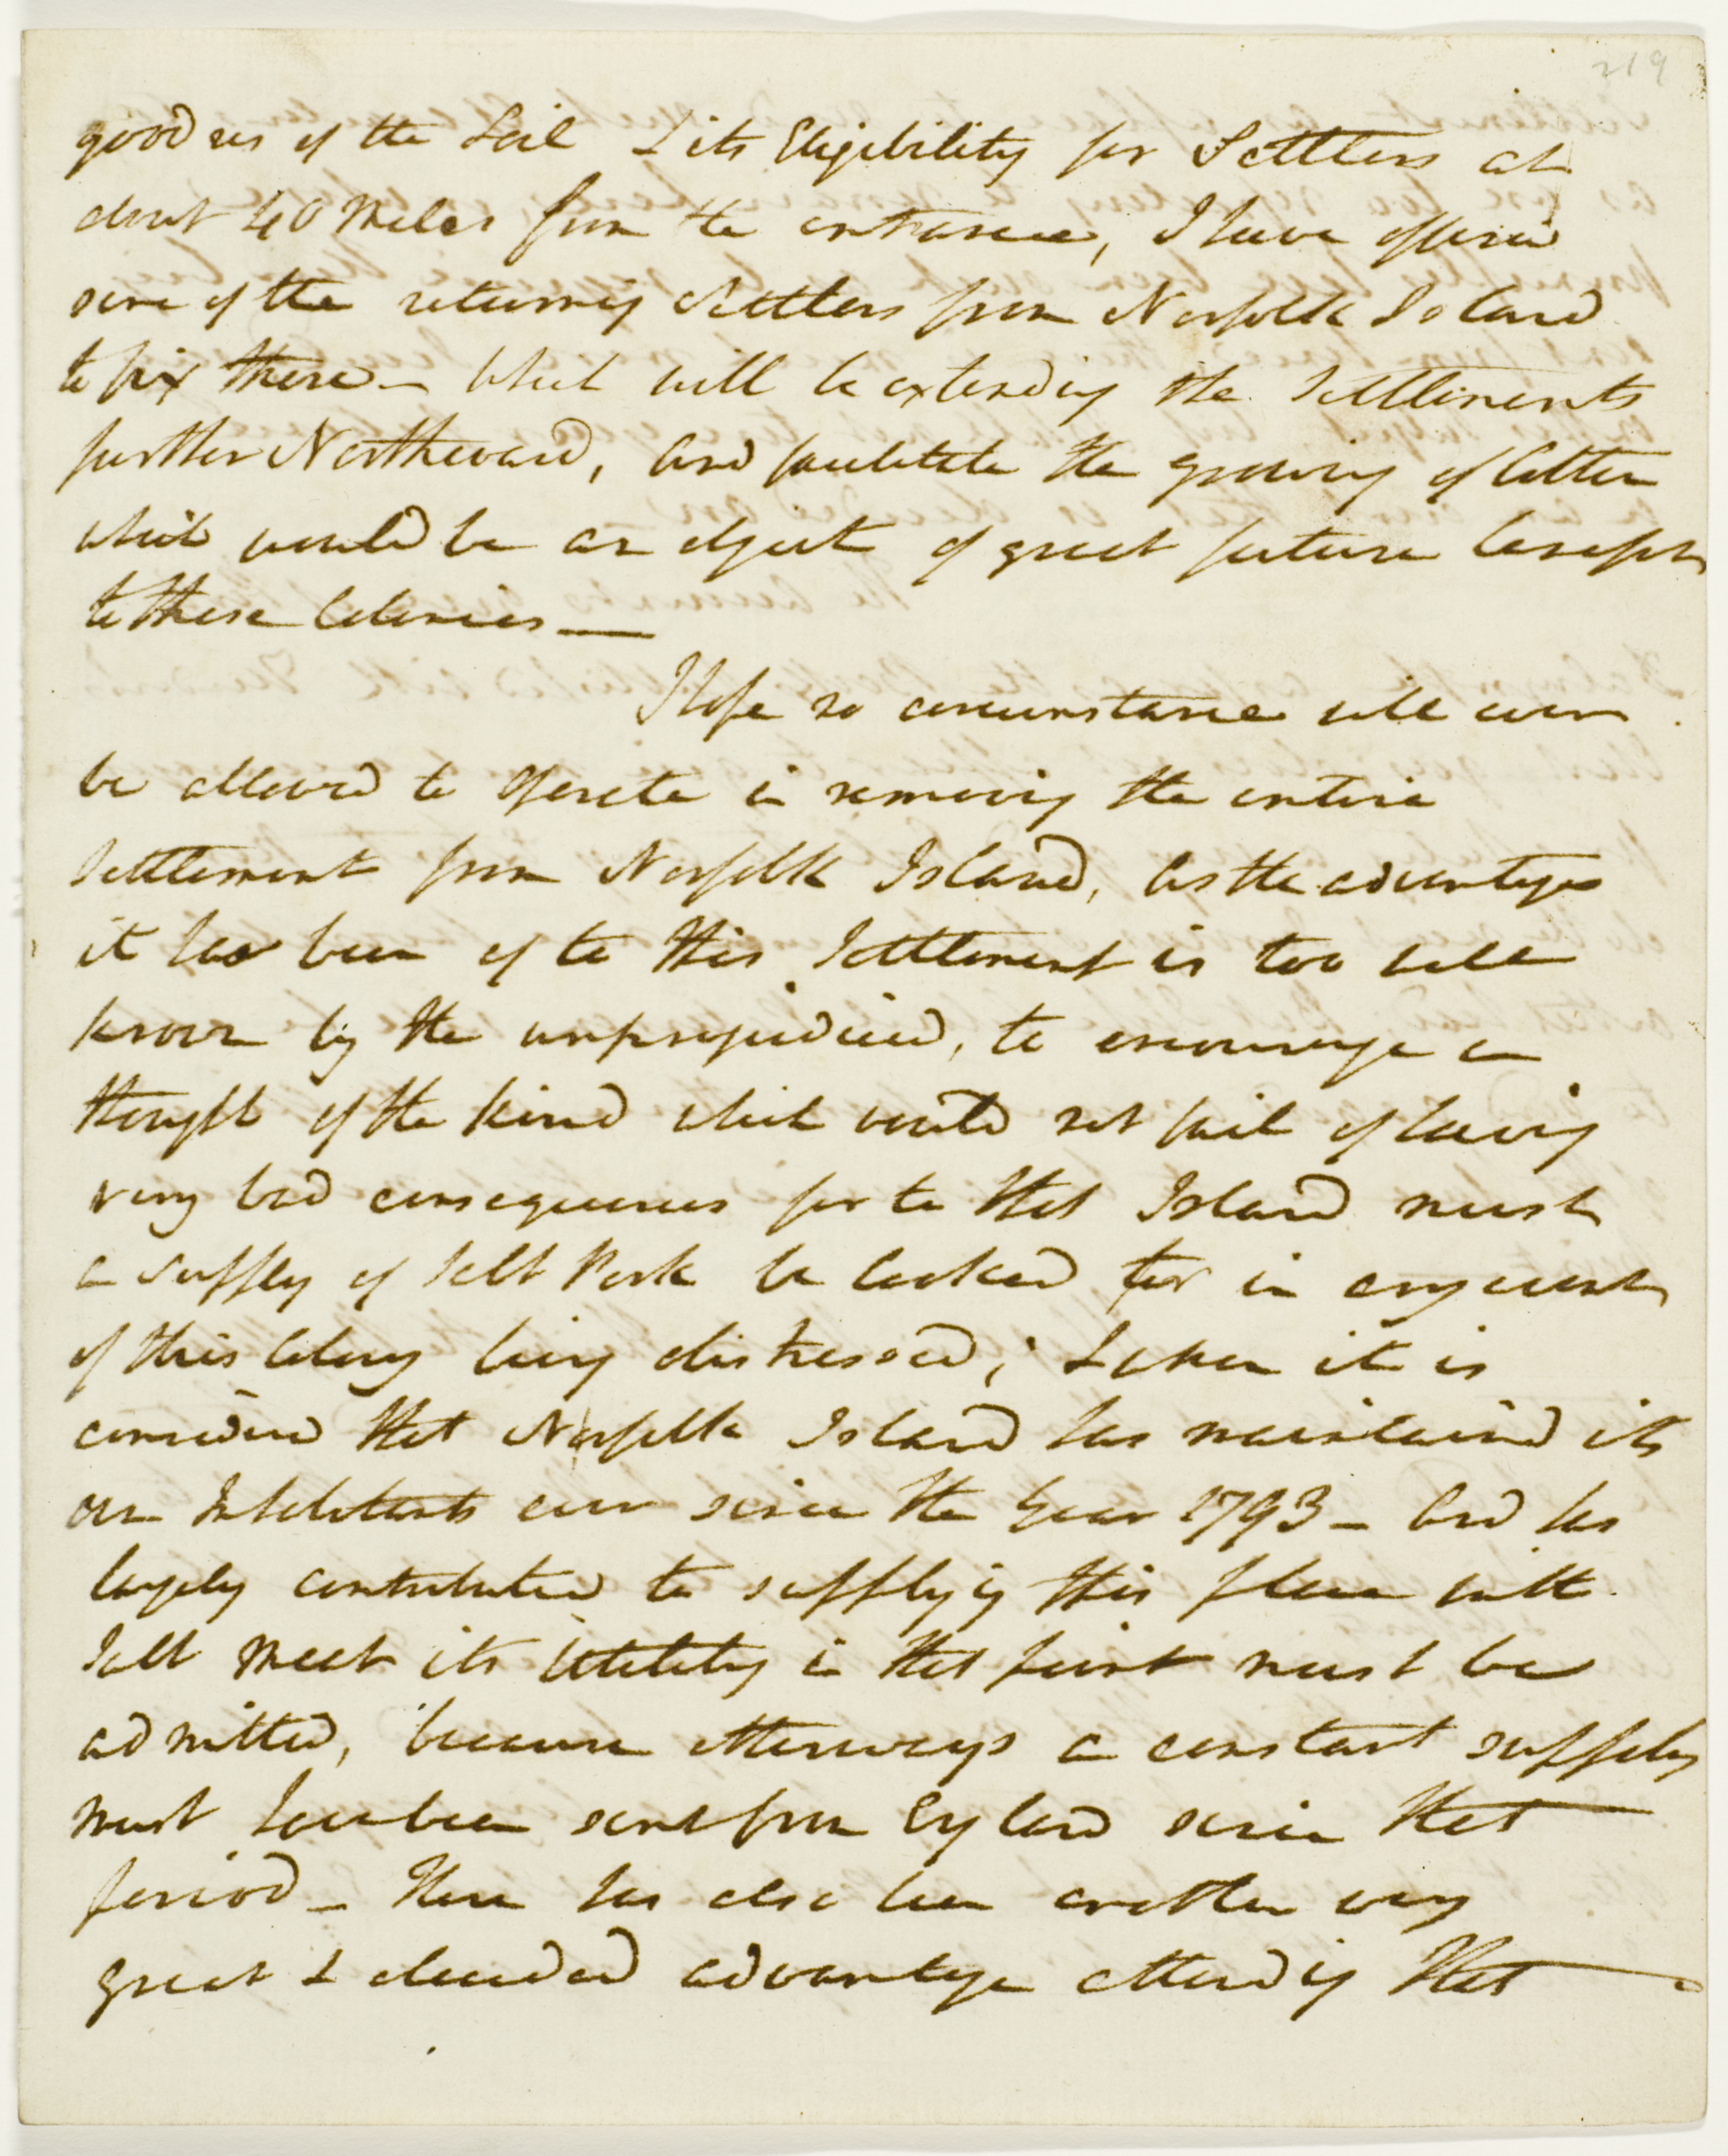 219
goodness of the Soil & its Eligibility for Settlers at
about 40 Miles from the entrance, I have offered
some of the returning Settlers from Norfolk Island
to fix there — which will be extending the Settlements
further Northward, and facilitate the growing of Cotton
which would be an object of great future benefit
to these Colonies —
I hope no circumstance will ever
be allowed to operate in removing the entire
Settlement from Norfolk Island, as the advantages
it has been of to this Settlement is too well
known by the unprejudiced, to encourage a
thought of the kind which would not fail of having
very bad consequences for to that Island must
a supply of Salt Pork be looked for in any event
of this Colony being distressed; & when it is
considered that Norfolk Island has maintained its
own Inhabitants ever since the Year 1793 — and has
largely contributed to supplyig this place with
Salt Meat its Utility in that point must be
admitted, because otherways a constant supply
must have been sent from England since that
period — There has also been another very
great & decided advantage attending that